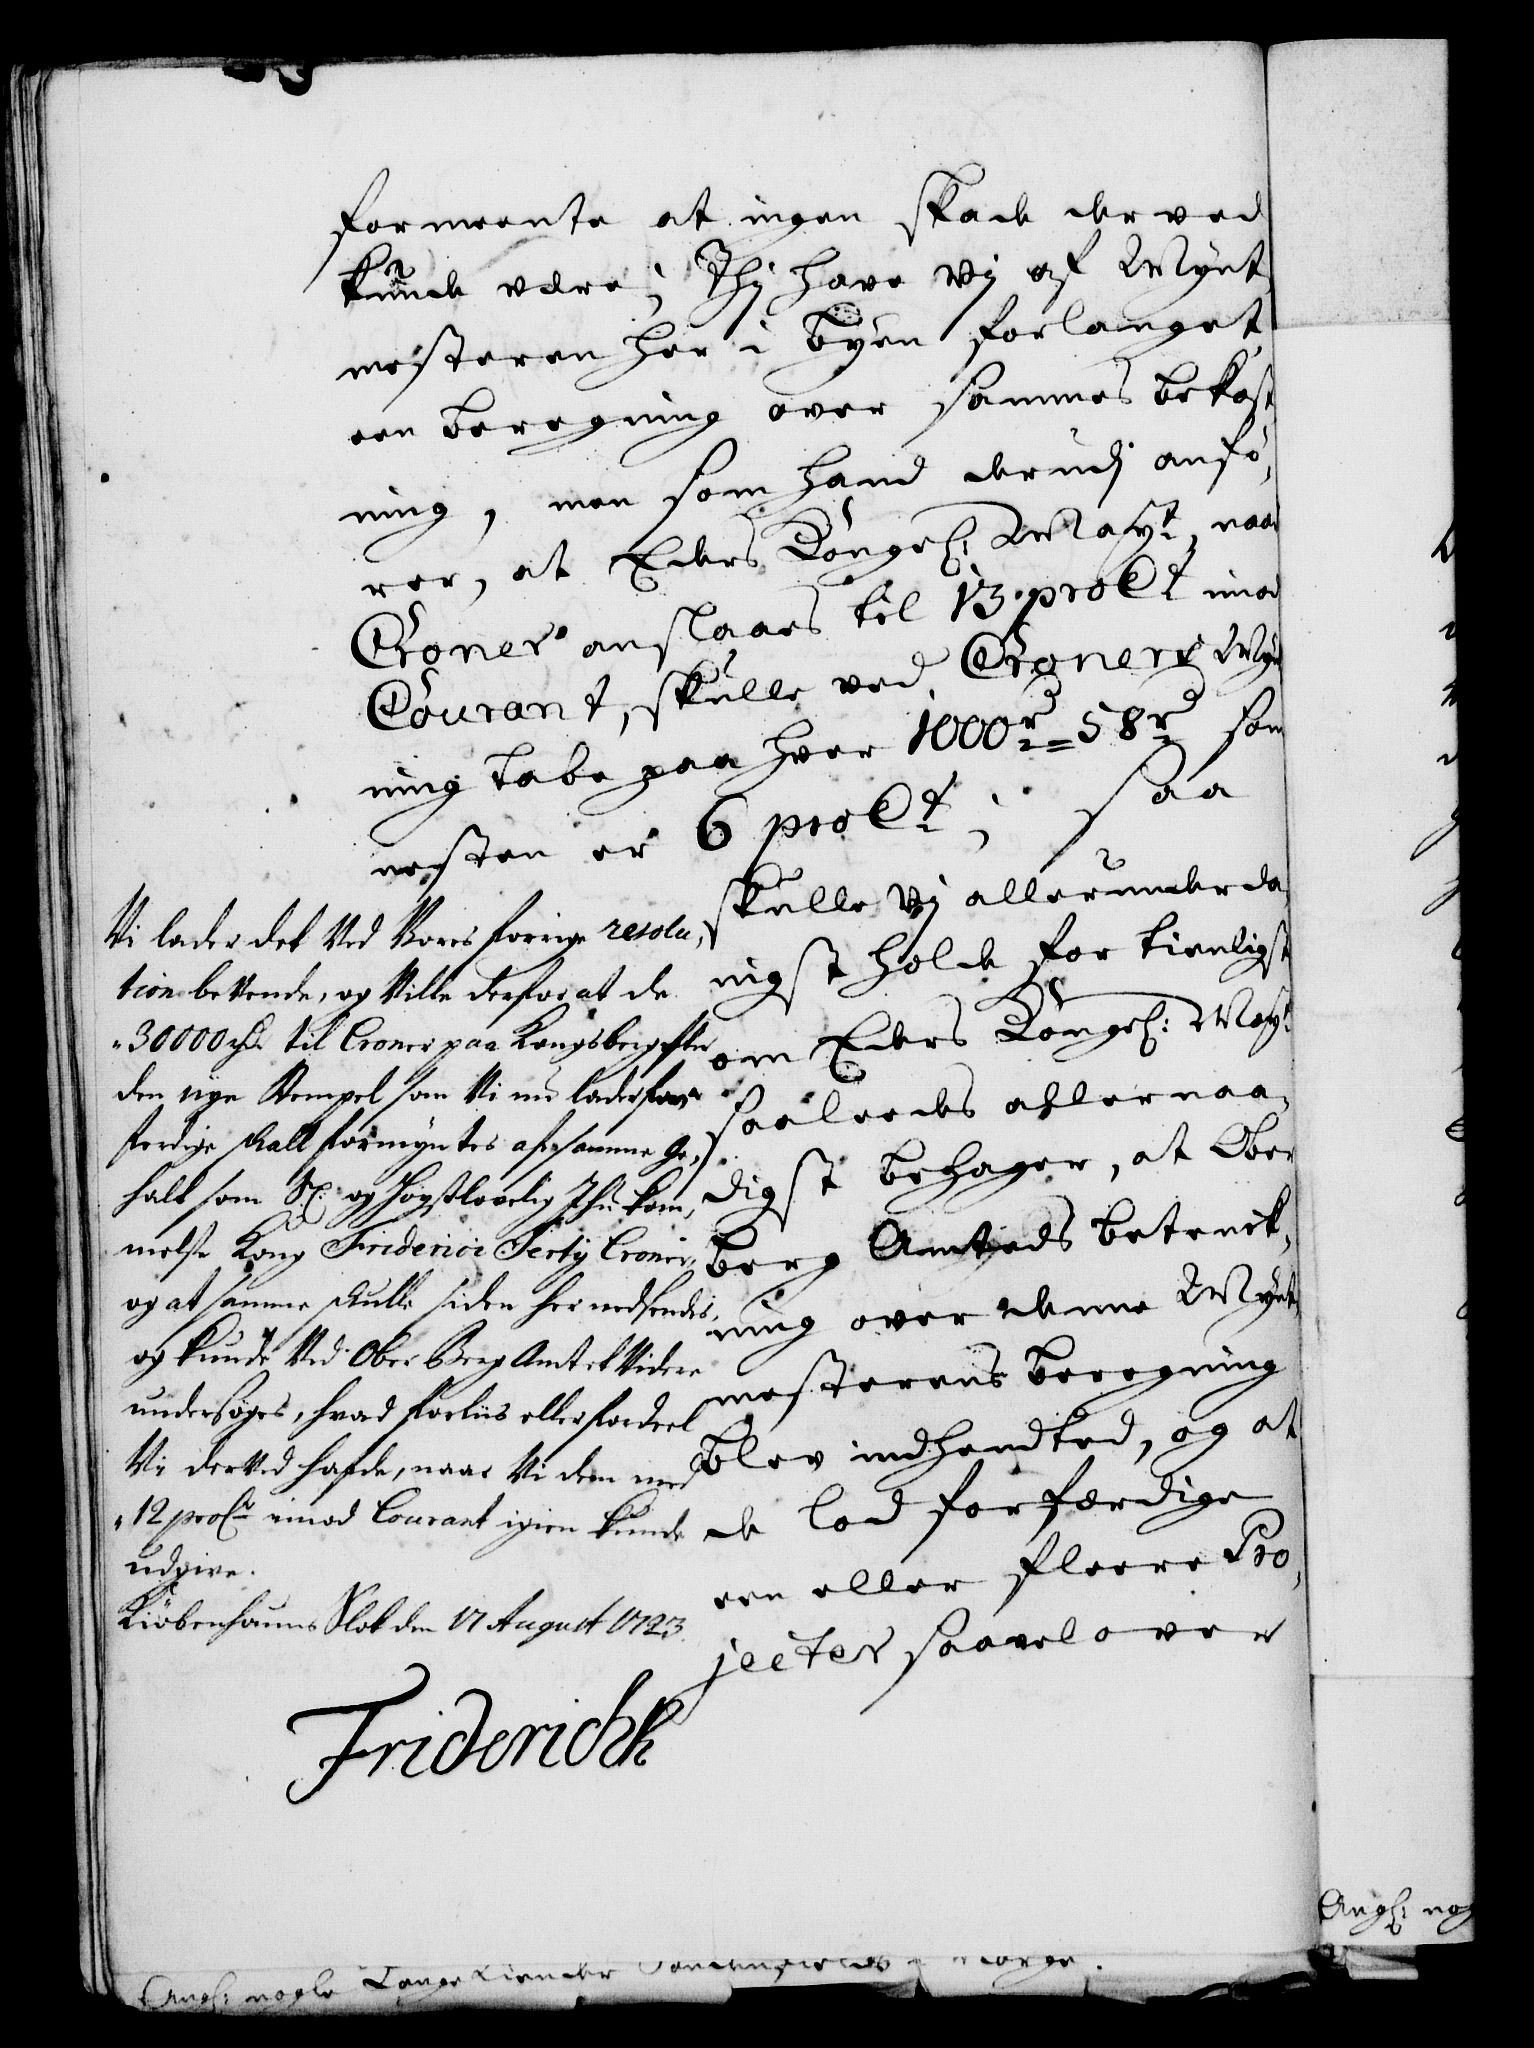 formeente at ingen skade derved
kunde være; Thj have Vj af Mÿnt
mesteren her i Bÿen forlanget
een beregning over sammes bekost,
ning, men som hand derudj anfö,
rer, at Eders Kongel: Mayt, naar
Croner anslaaes til 13 pro Ct imod
Courant, skulle ved Croners Myn
ning tabe paa hver 1000 rd = 58 rd som
nesten er 6 pro Ct; saa
skulle Vj allerunderda
nigst holde for tienligst
om Eders Kongel: Mayt
saaleedes allernaa,
digst behager, at Ober
berg Amteds betenk,
ning over denne Mÿnt
mesterens beregning
blev indhendted, og at
de lod forfærdige
een eller fleere Pro,
jecter saavel over
Vi lader det ved Vores forrige resolu,
tion bevende, og ville derfor at de
30000 rd til Croner paa Kongsberg efter
den nye Stempel som Vi nu lader for,
ferdige skall formyntes af samme Ge,
halt som Sl: og Höystlovelig Ihukom,
melse Kong Friderici Tertij Croner,
og at samme skulle siden her nedsendes,
og kunde ved Ober Berg Amtet videre
undersöges, hvad forliis eller fordeel
Vi derved hafde, naar Vi dem med
12 pro Ct imod Courant igien kunde
udgive.
Kiöbenhauns Slot den 17 August 1723.
Friderich
Angl: nogle
Angl: nog